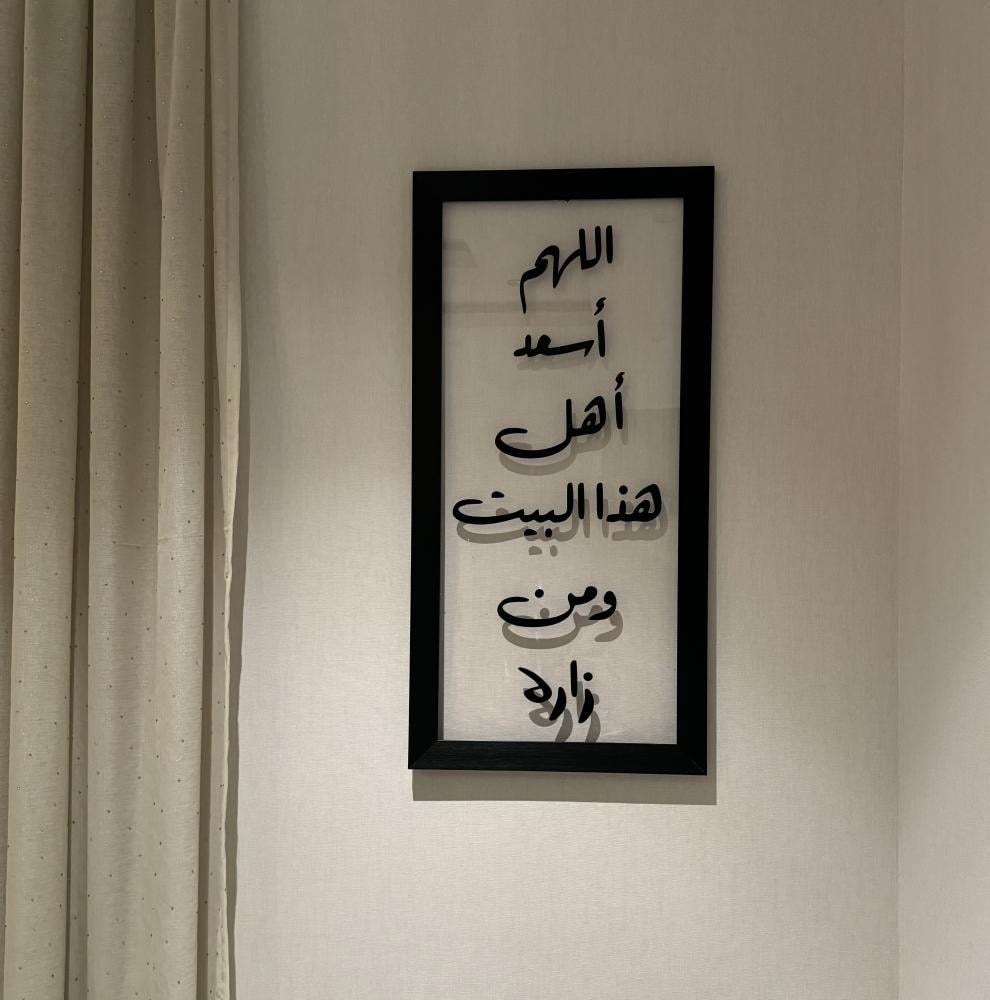 اللهم
أسعد
أهل
هذا البيت
ومن
زاره